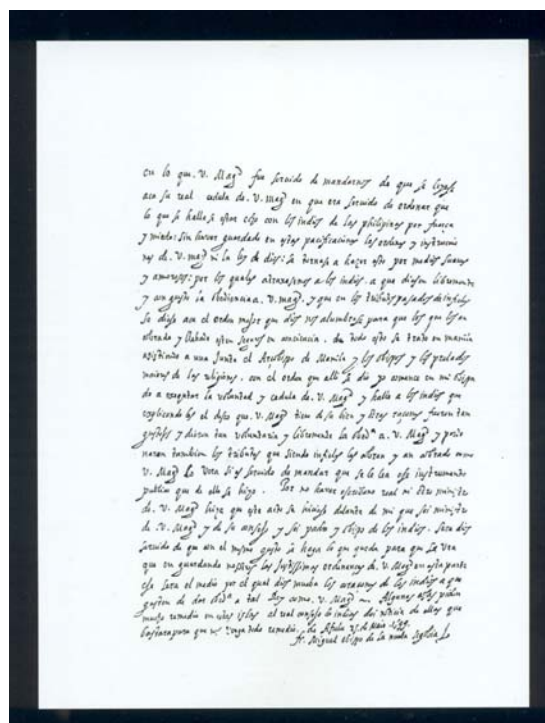 en lo que. V. Mag.d fue seruido de mandarnos de que se hiziese
aca su real cedula de. V. mag.d en que era seruido de ordenar que
lo que se halla se efeto con los indios de las philipinas por fuerça
y miedo: sin hauer guardado en estas pacificaciones las ordenes y instrucio
nes de. V. mag.d ni la ley de dios: se tornase a hazer esto por medios suaues
y amorosos: por los quales atraxasemos a los indios. a que diesen libremente
y con gusto la obediencia a. V. mag.d. y que en los tributos pasados de infieles
se diese aca el orden mejor que dios nos alumbrase para que los que los an
cobrado y lleuado esten seguros en conciencia. de todo esto se trato en manila
asistiendo a una junta el Arçobispo de Manila y los obispos y los prelados
maiores de las religiones. con el orden que alli se dio yo comence en mi obispa
do a executar la voluntad y cedula de. V. Mag.d y halle a los indios que
explicandoles el deseo que. V. Mag.d tiene de su bien y otras raçones fueron tan
gustosos y dieron tan voluntaria y libremente la obed.a a. V. Mag.d y perdo
naron tambien los tributos que siendo infieles les cobraron y an cobrado como
V. Mag.d lo vera si es seruido de mandar que se le lea ese instrumento
publico que de ello se hizo. Por no hauer escribano real ni otro ministro
de. V. Mag.d hize que este acto se hiziese delante de mi que soi ministro
de. V. Mag.d y de su consejo y soi padre y obispo de los indios. sera dios
seruido de que con el mismo gusto se haga lo que queda para que se vea
que en guardando nosotros las justissimas ordenanças de. V. Mag.d en esta parte
esse sera el medio por el qual dios mueba los coraçones de los indios a que
gusten de dar obed.a a tal Rey como. V. Mag.d Algunas cosas piden
mucho remedio en estas islas al real consejo de indias doi noticia de ellas que
bastara para que se ponga todo remedio. de Maio
fr. Miguel obispo de la nueba segobia